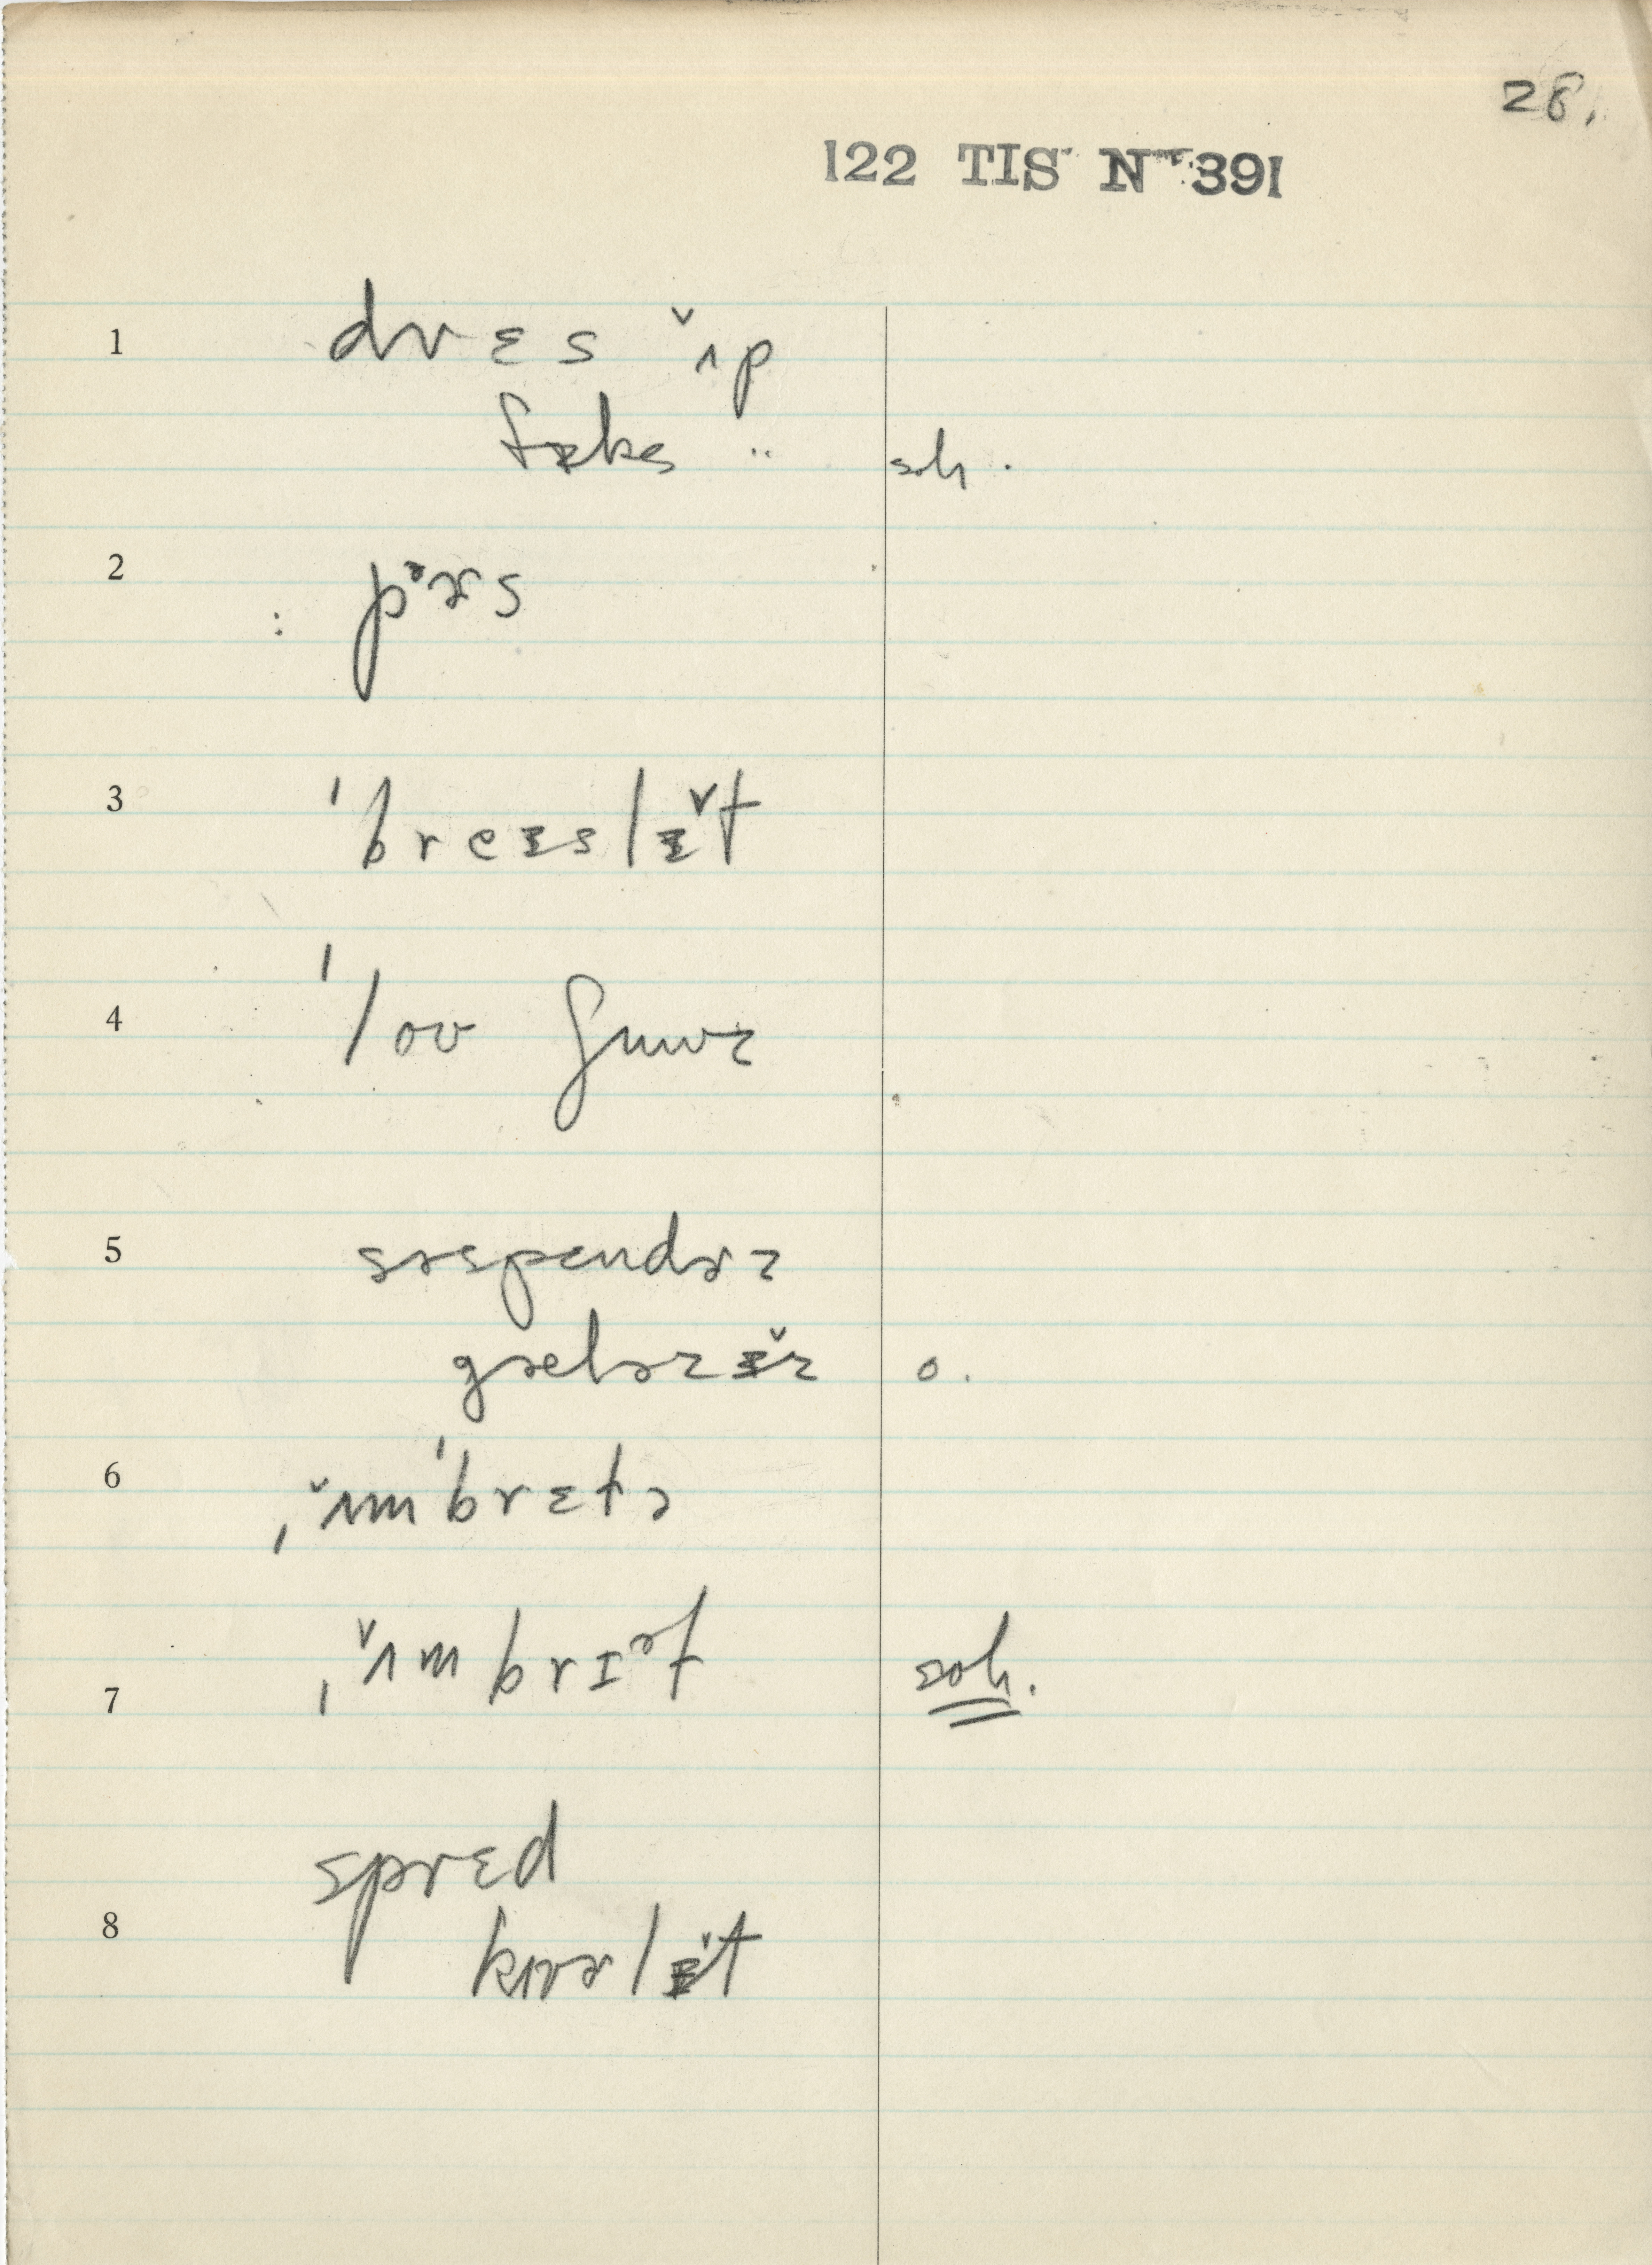 28.
122 TIS Nº 391
1 dr ɛ s ʌ̌p
fɪks ¨ soh.
2 pəɚs
3 ˈbreɪslɪ̌t
4 ˈloʊ ʃuuz
5 səspendɚz
galəzɪ̌z o.
6 ˌʌ̌mˈbrɛlə
7 ˌʌ̌mbrɪəl soh.
sprɛd
8 kɪvɚlɪ̌t